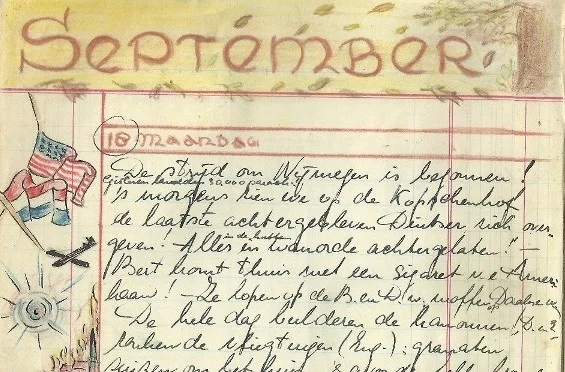 SEPTEMBER
18 MAANDAG
De strijd om Nijmegen is begonnen!
Gisteren 30,000 parach.
's morgens zien we op de Kopschenhof
de laatste achtergebleven Duitser zich over-
geven. - Alles in wanorde achtergelaten! -
in de hutten
Bert komt thuis met een sigaret v.e. Ameri-
kaan! - Ze lopen op de B. en D. w.
De hele dag bulderen de kanonnen,
de vliegtuigen (Eng.): granaten